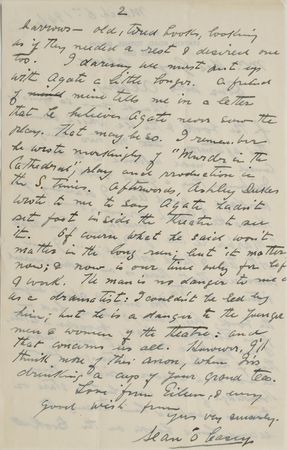 2
barrows — old, tired books, looking
as if they needed a rest & desired one
too. I daresay we must put up
with Agate a little longer. A friend
of mine tells me in a letter
that he believes Agate never saw the
play. That may be so. I remember
he wrote mockingly of "Murder in the
Cathedral", play and production in
the S. Times. Afterwards, Ashley Dukes
wrote to me to say Agate hadn't
set foot inside the theatre to see
it. Of course what he said won't
matter in the long run, but it matters
now; & now is our time only for life
& work. The man is no danger to me
as a dramatist: I couldn't be led by
him; but he is a danger to the younger
men & women of the theatre: and
that concerns us all. However, I'll
think more of this anon, when I'm
drinking a cup of your grand tea.
Love from Eileen, & every
good wish from
yours very sincerely,
Sean O'Casey